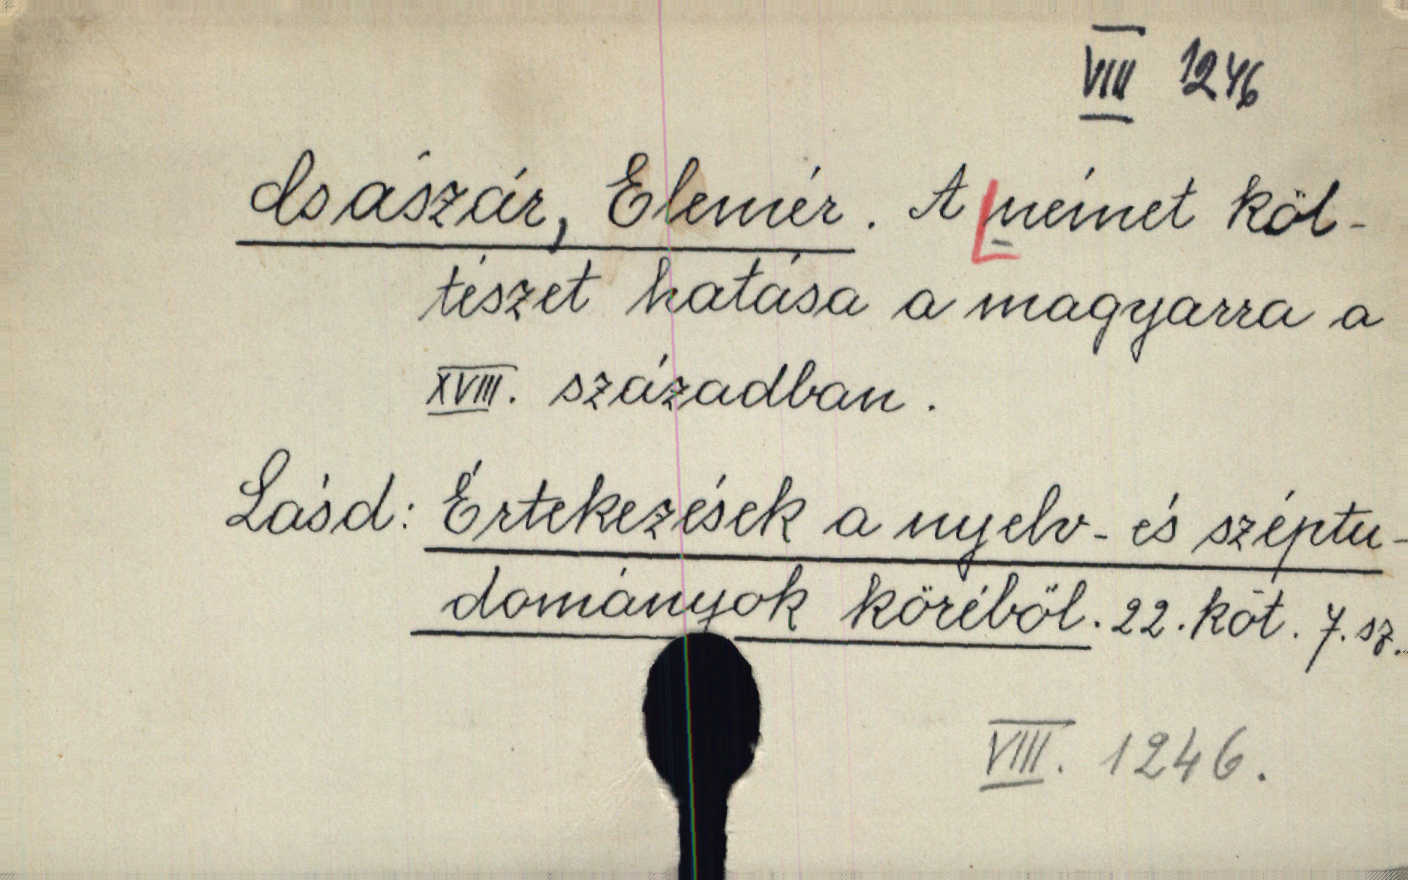 VIII 1246
Császár, Elemér. A német köl-
tészet hatása a magyarra a
XVIII. században.
Lásd: Értekezések a nyelv- és széptu-
dományok köréből. 22. köt. 7. sz.
VIII. 1246.